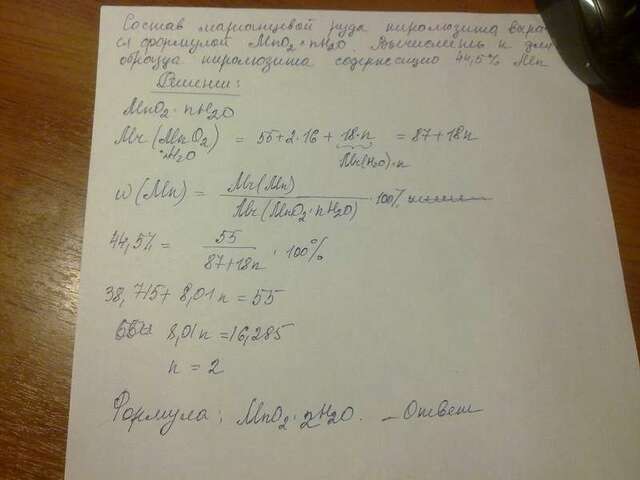 Состав марганцевой руды пиролюзита выра-
ся формулой MnO2·nH2O. Вычислить n для
образца пиролюзита содержащего 44,5% Mn
Решение:
MnO2·nH2O
Mr(MnO2·nH2O) = 55+2·16+18·n = 87+18n
Mr(H2O)·n
w(Mn) = Mr(Mn) / Mr(MnO2·nH2O) ·100%
44,5% = 55 / 87+18n · 100%
38,715+8,01n=55
8,01n=16,285
n = 2
Формула: MnO2·2H2O. – Ответ